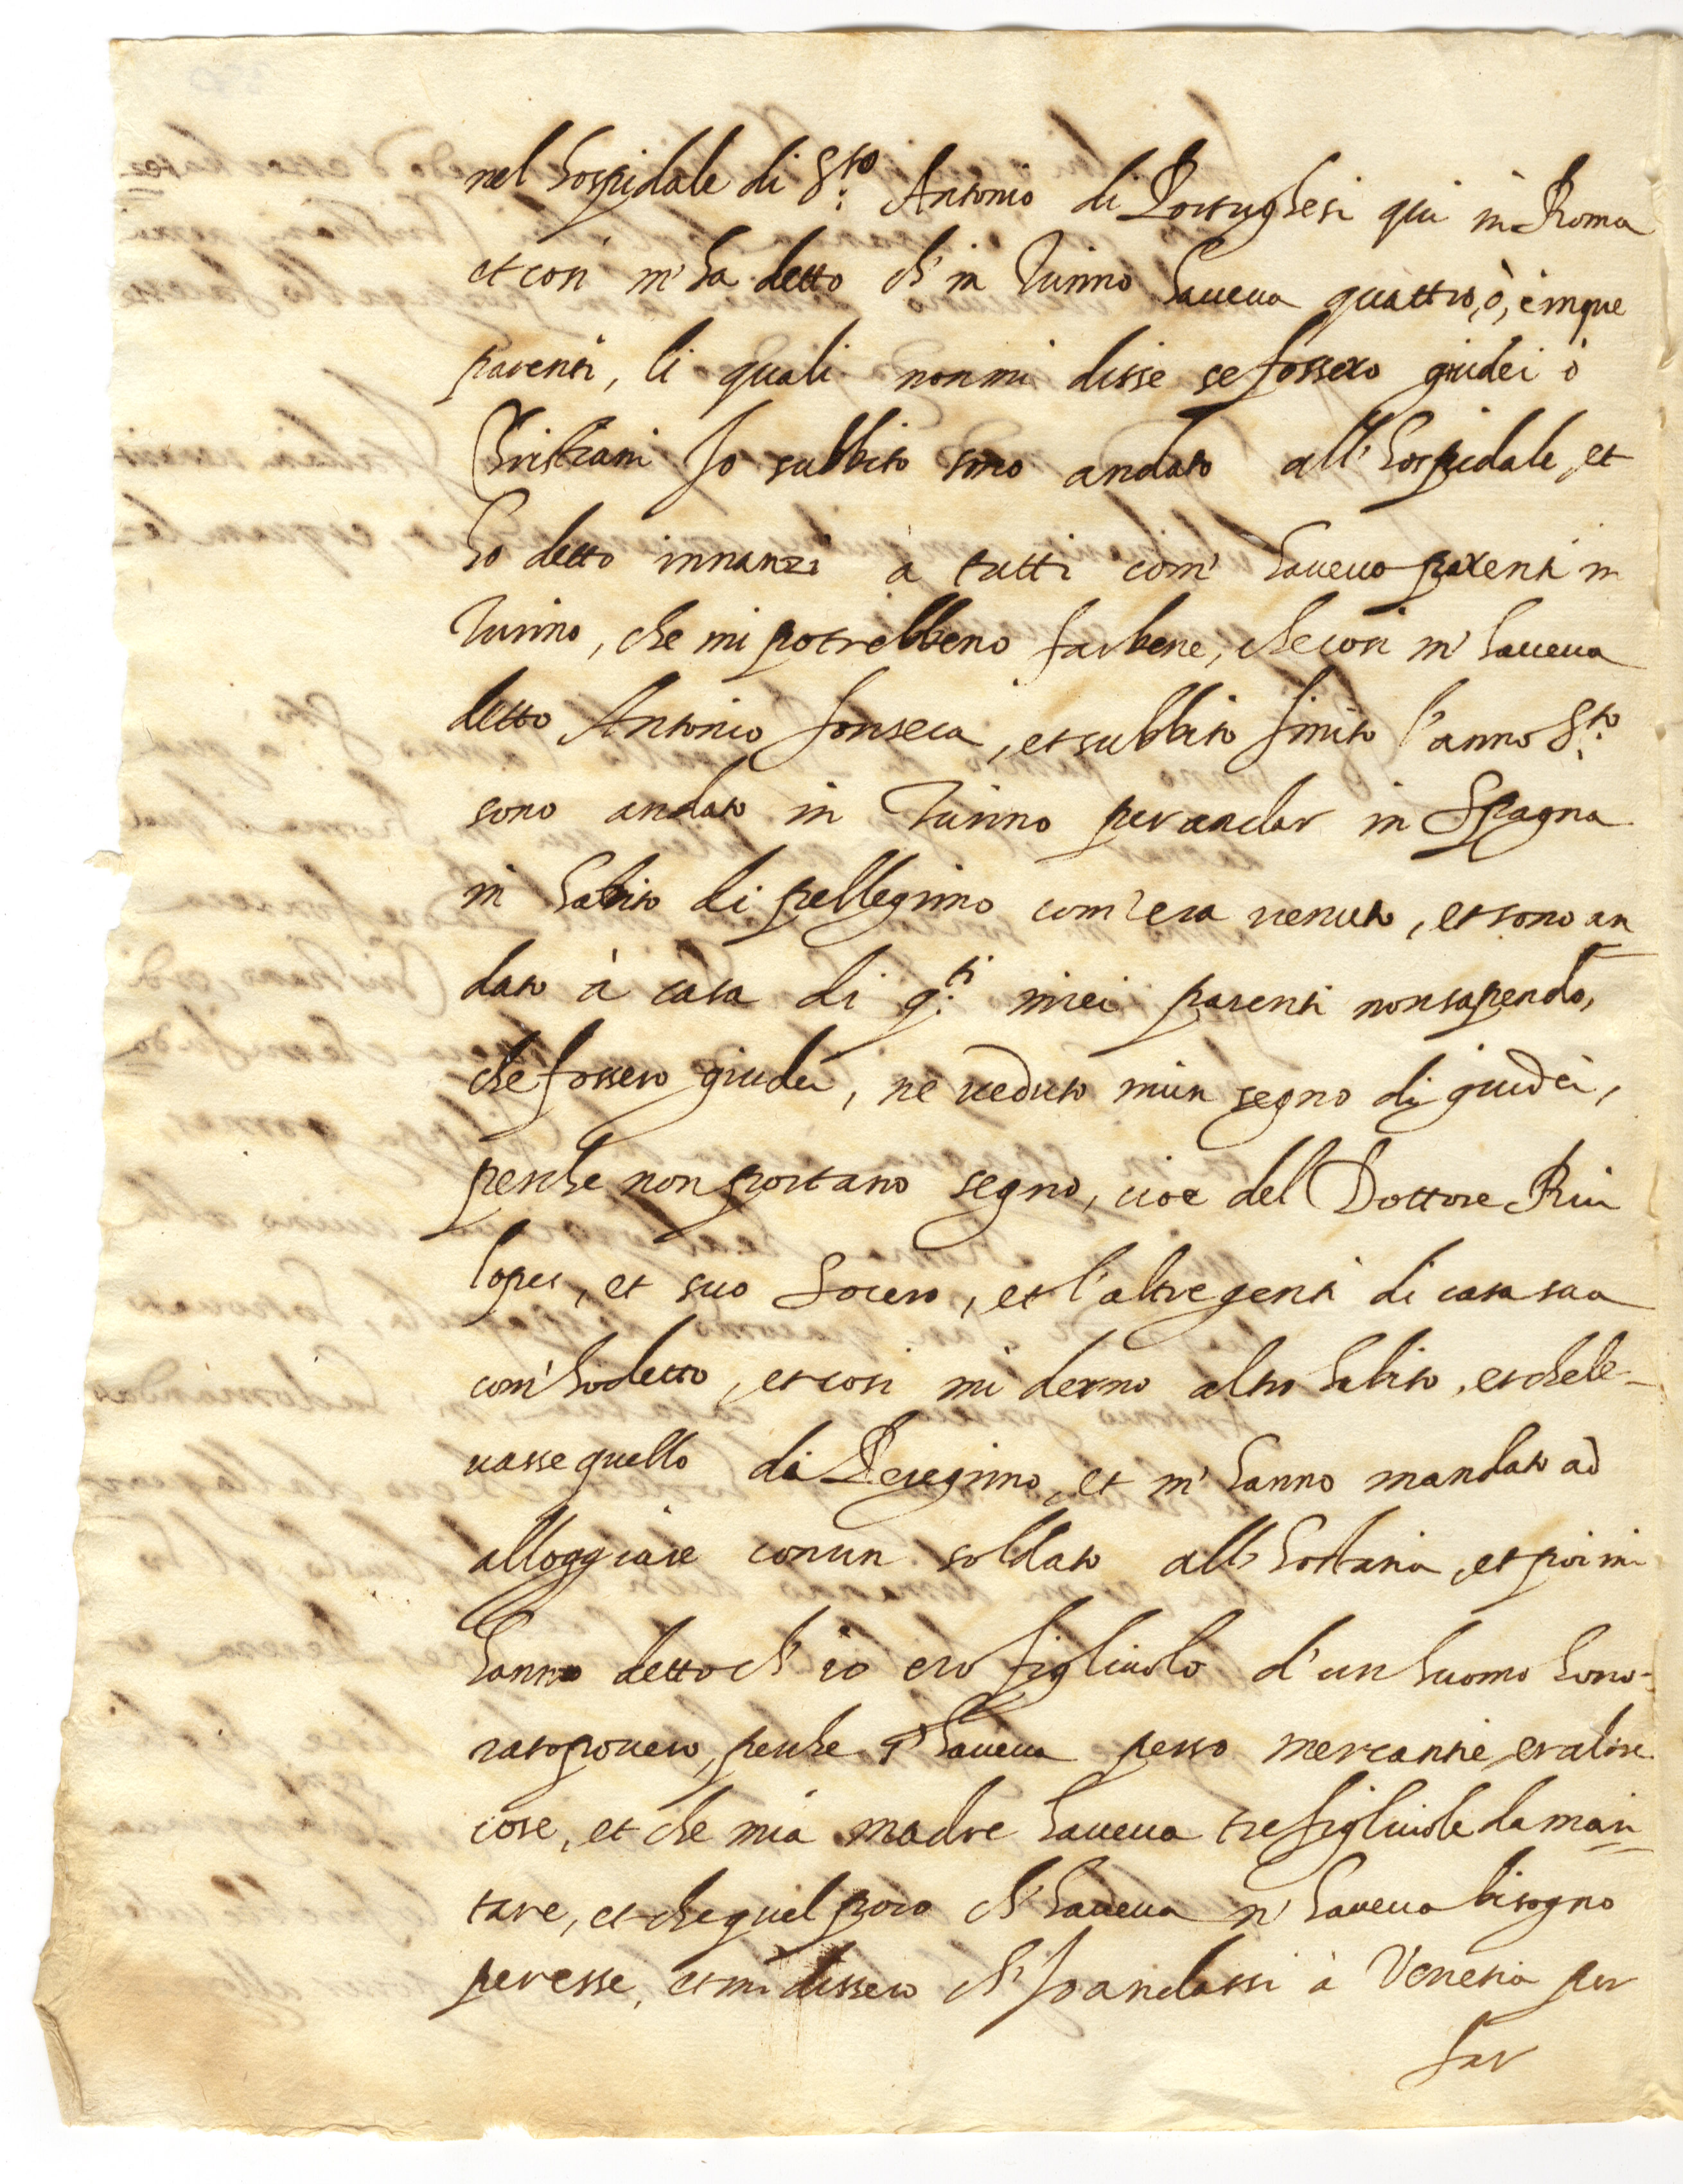 nel hospidale di S.to Antonio di Portughesi qui in Roma
et così m'ha detto ch'in Turino haueua quattro, ò, cinque
parenti, li quali non mi disse se fossero giudei ò
Christiani Io subbito sono andato all'hospidale, et
ho detto innanzi à tutti com' haueuo parenti in
Turino, che mi potrebbeno far bene, che così m'haueua
detto Antonio fonseca, et subbito finito l'anno S.to
sono andato in Turino per andar in Spagna
in habito di pellegrino com'era uenuto, et sono an
dato à casa di q.ti miei parenti non sapendo,
che fossero giudei, ne ueduto niun segno di giudei,
perche non portano segno, cioe del Dottore Rui
lopes, et suo Socero, et l'altre genti di casa sua
com' ho detto, et così mi derno altro habito, et che le-
uasse quello di Peregrino, et m'hanno mandato ad
alloggiare con un soldato all'hostaria, et poi mi
hanno detto ch'io ero figliuolo d'un huomo hono-
rato pouero, perche haueua perso mercantie et altre
cose, et che mia madre haueua tre figliuole da mari
tare, et che quel poco ch'haueua n'haueua bisogno
per esse, et mi dissero ch'Io andassi à Venetia per
far